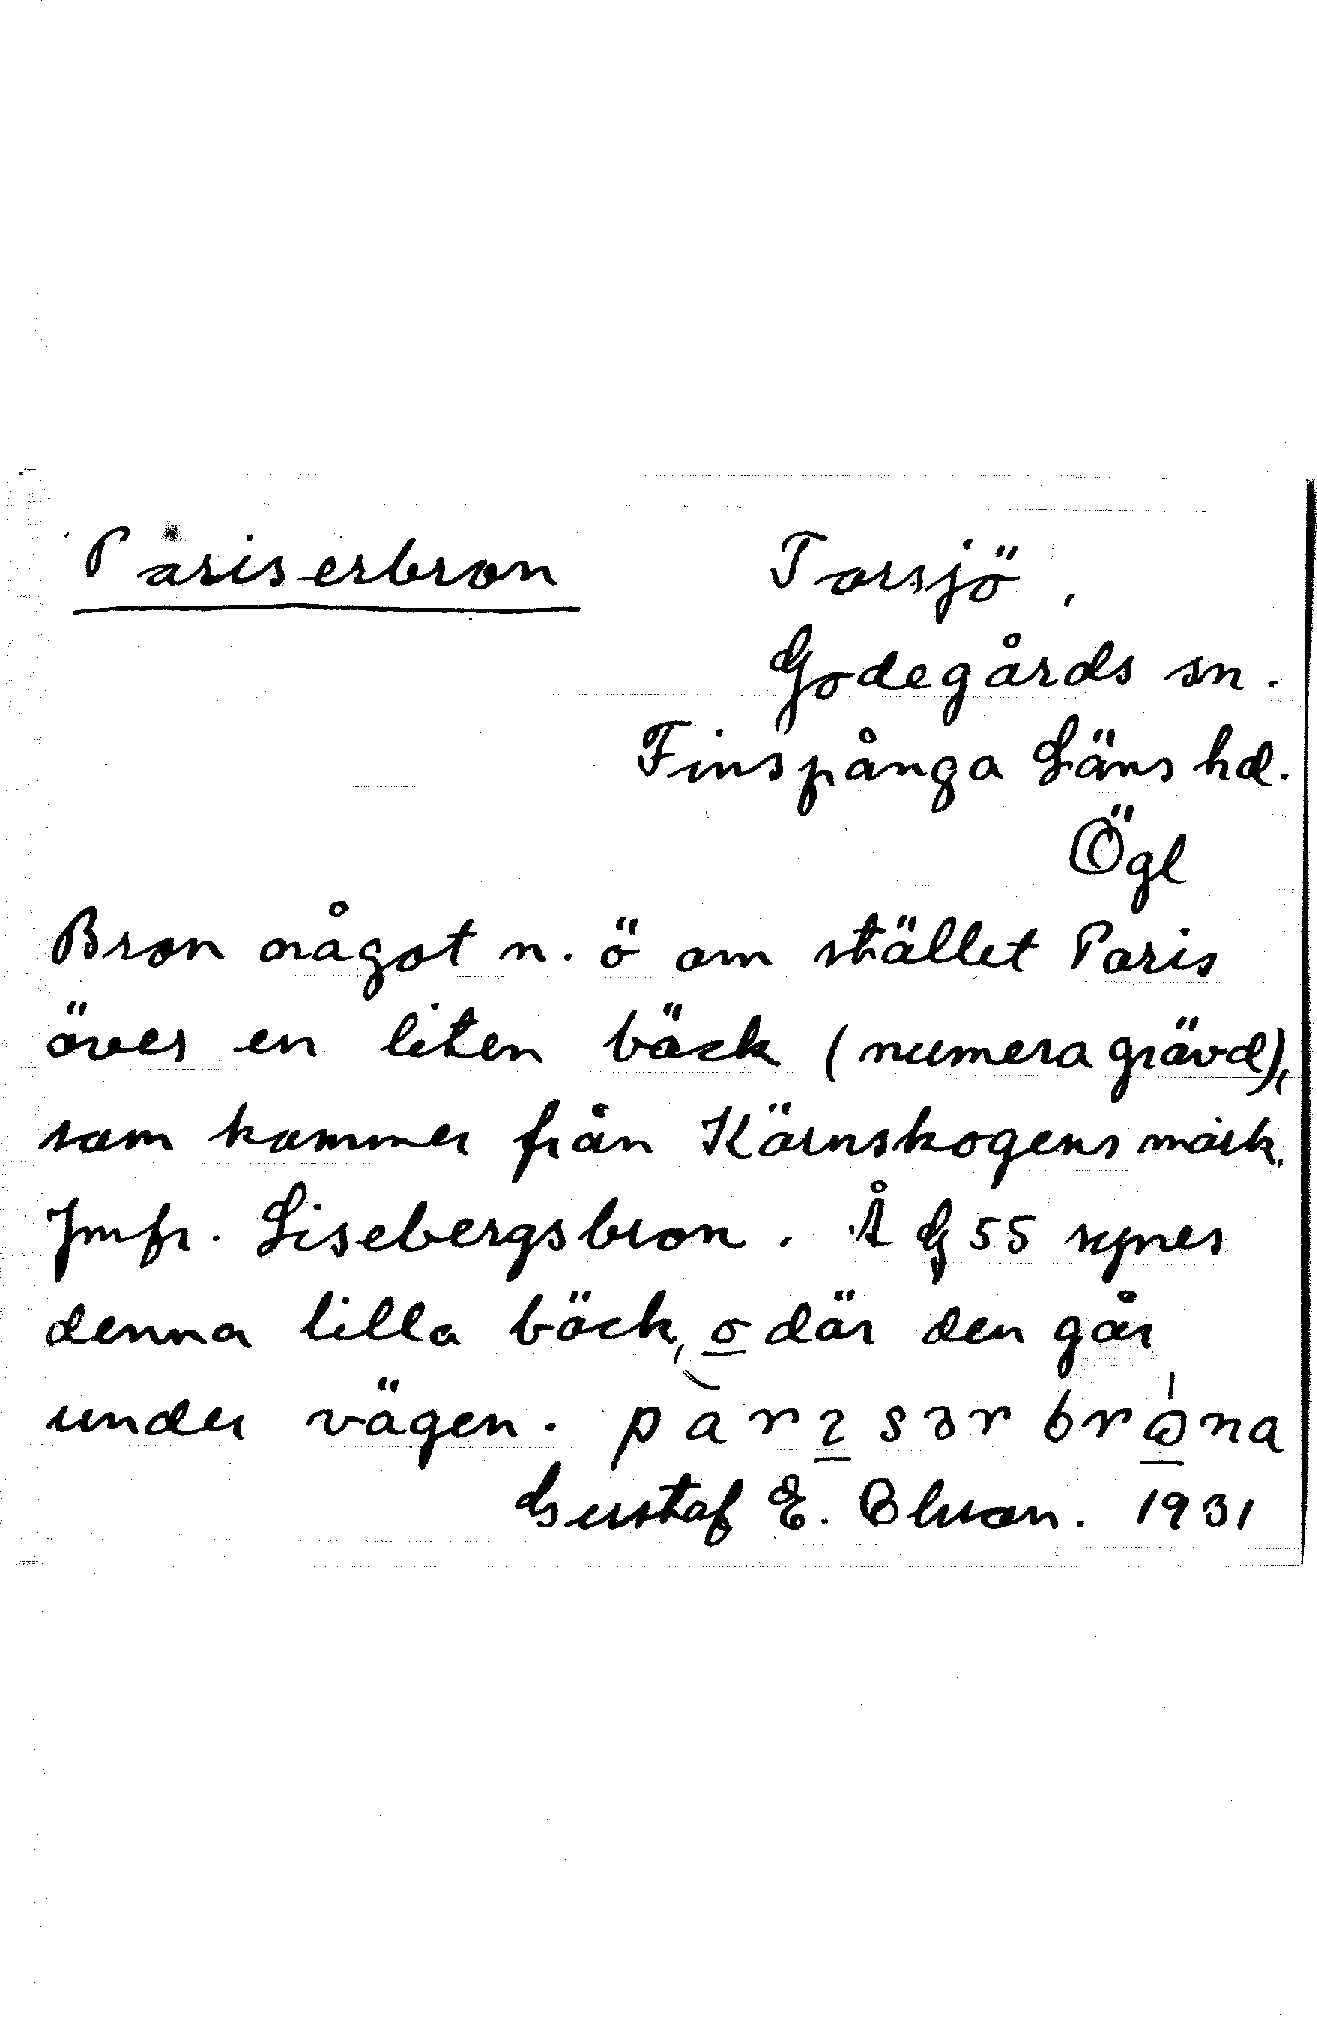 Pariserbron Torsjö,
Godegårds sn.
Finspånga Läns hd.
Ögl
Bron något n. ö om stället Paris
över en liten bäck (numera grävd),
som kommer från Kärnskogens mark.
Jmfr. Lisebergsbron. Å G 55 synes
denna lilla bäck, o där den går
under vägen.
Gustaf E. 1931